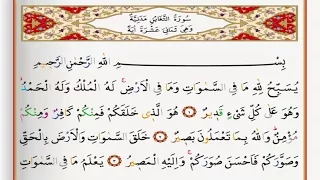 سورة التغابن مدنية
وهي ثماني عشرة آية
بِسْمِ اللَّهِ الرَّحْمَٰنِ الرَّحِيمِ
يُسَبِّحُ لِلَّهِ مَا فِي السَّمٰوَاتِ وَمَا فِي الْأَرْضِ ۚ لَهُ الْمُلْكُ وَلَهُ الْحَمْدُ ۖ
وَهُوَ عَلَىٰ كُلِّ شَيْءٍ قَدِيرٌ ۝ هُوَ الَّذِي خَلَقَكُمْ فَمِنْكُمْ كَافِرٌ وَمِنْكُمْ
مُؤْمِنٌ ۚ وَاللَّهُ بِمَا تَعْمَلُونَ بَصِيرٌ ۝ خَلَقَ السَّمٰوَاتِ وَالْأَرْضَ بِالْحَقِّ
وَصَوَّرَكُمْ فَأَحْسَنَ صُوَرَكُمْ ۖ وَإِلَيْهِ الْمَصِيرُ ۝ يَعْلَمُ مَا فِي السَّمٰوَاتِ